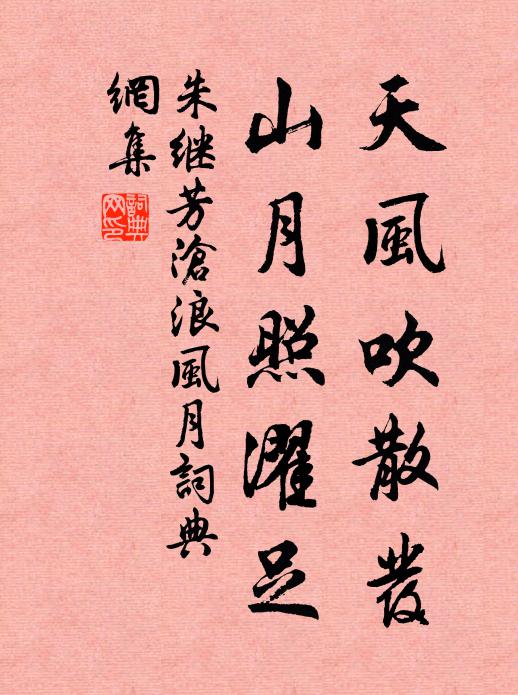 天風吹散發
山月照濯足
朱继芳滄浪風月詞典
網集
詞典
网印